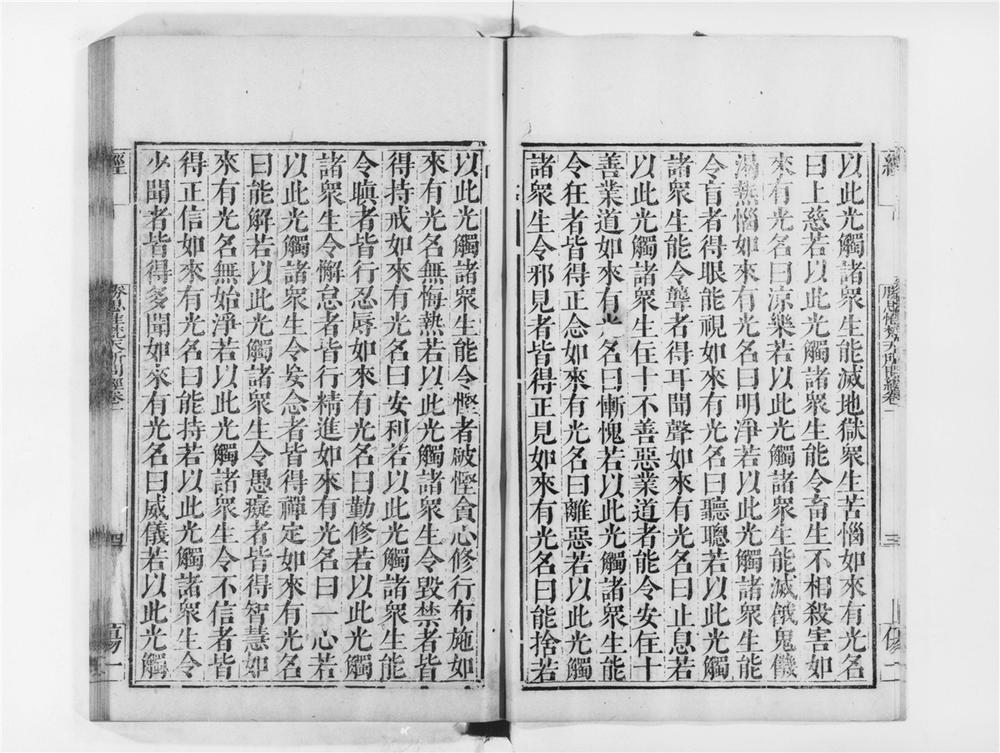 以此光觸諸衆生能滅地獄衆生苦惱如來有光名
曰上慈若以此光觸諸衆生能令畜生不相殺害如
來有光名曰涼樂若以此光觸諸衆生能滅餓鬼饑
渴熱惱如來有光名曰明淨若以此光觸諸衆生能
令盲者得眼能視如來有光名曰聽聰若以此光觸
諸衆生能令聾者得耳聞聲如來有光名曰止息若
以此光觸諸衆生住十不善惡業道者能令安住十
善業道如來有光名曰慚愧若以此光觸諸衆生能
令狂者皆得正念如來有光名曰離惡若以此光觸
諸衆生令邪見者皆得正見如來有光名曰能捨若
以此光觸諸衆生能令慳者破慳貪心修行布施如
來有光名無悔熱若以此光觸諸衆生令毀禁者皆
得持戒如來有光名曰安利若以此光觸諸衆生能
令瞋者皆行忍辱如來有光名曰勤修若以此光觸
諸衆生令懈怠者皆行精進如來有光名曰一心若
以此光觸諸衆生令妄念者皆得禪定如來有光名
曰能解若以此光觸諸衆生令愚癡者皆得智慧如
來有光名無始淨若以此光觸諸衆生令不信者皆
得正信如來有光名曰能持若以此光觸諸衆生令
少聞者皆得多聞如來有光名曰威儀若以此光觸
經
四
傷一